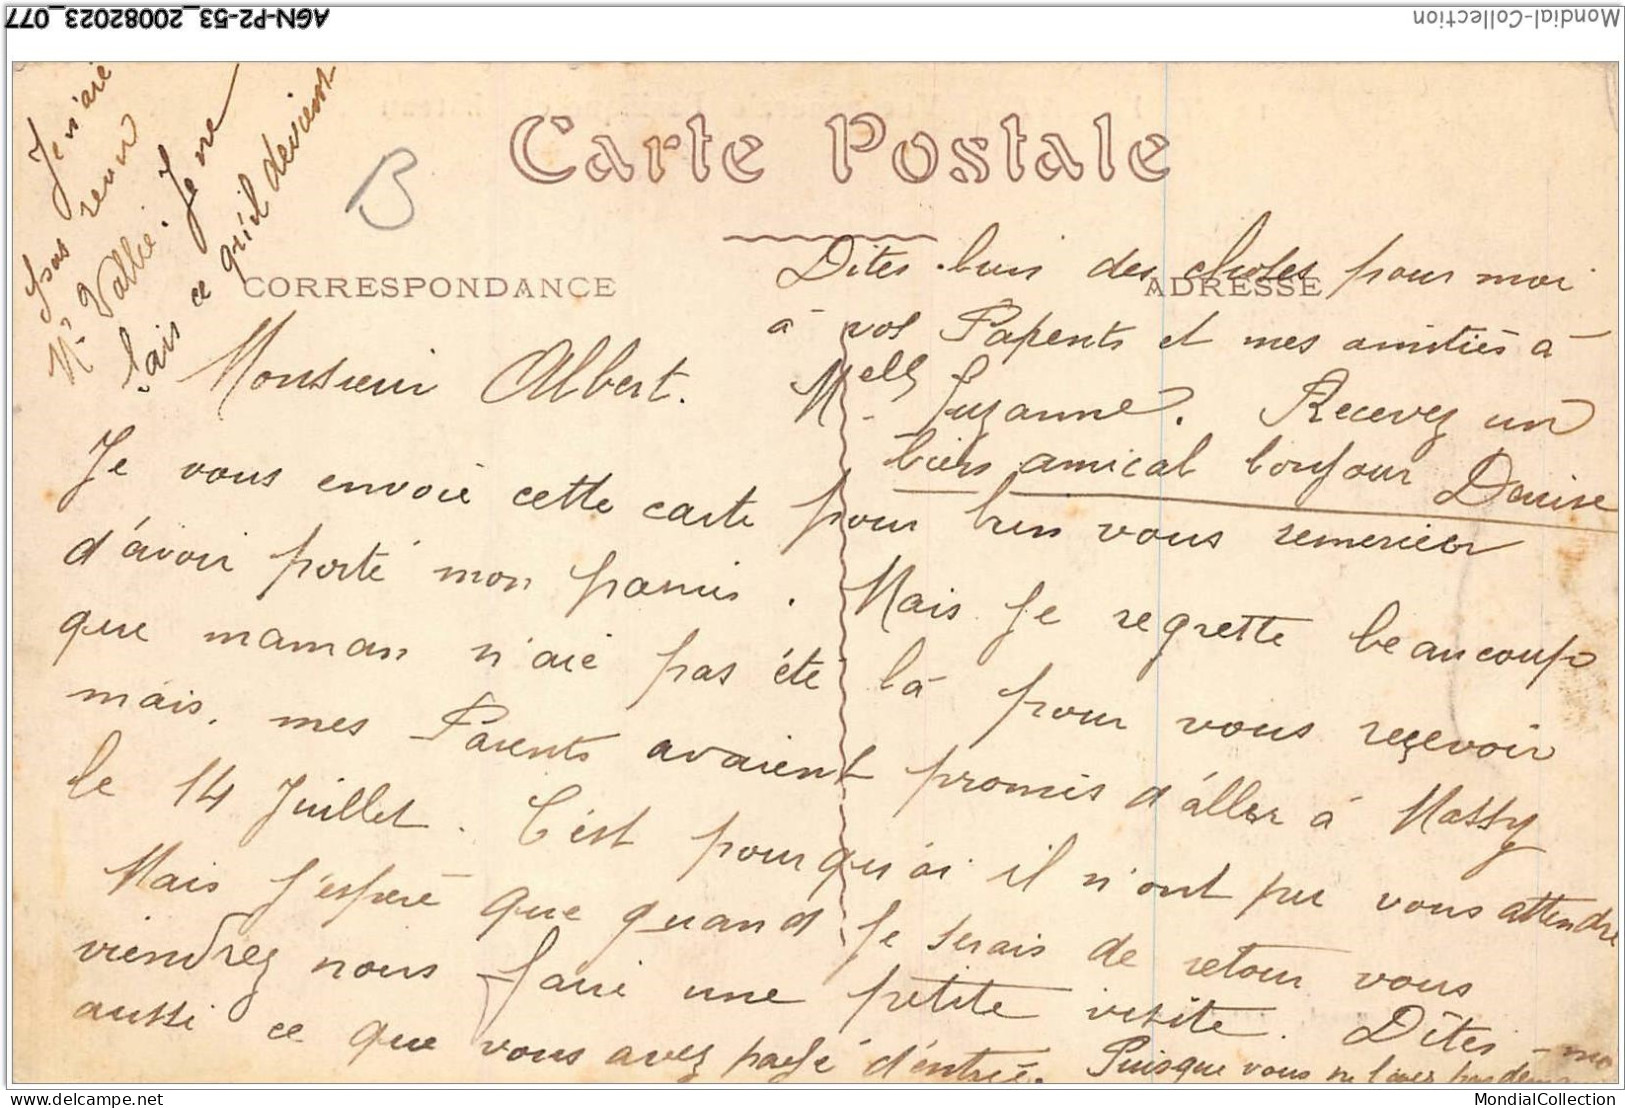 AGN-P2-53_20082023_077
Mondial-Collection
Carte Postale
CORRESPONDANCE
ADRESSE
Monsieur Albert.
Je vous envoie cette carte pour bien vous remercier
d'avoir porté mon panier. Mais je regrette beaucoup
que maman n'aie pas été là pour vous reçevoir
mais. mes Parents avaient promis d'áller à Massy
le 14 Juillet. C'est pourquoi il n'ont pu vous attendre
Mais j'espère que quand je serais de retour vous
viendrez nous faire une petite visite. Dîtes-moi
aussi ce que vous avez payé d'entrée. Puisque vous ne l'avez pas
Dites bien des choses pour moi
à vos Parents et mes amitiés à
Melle Suzanne. Recevez un
bien amical bonjour Denise
Je n'aie
pas revu
Mr Vallie. Je ne
sais ce qu'il devient
MondialCollection